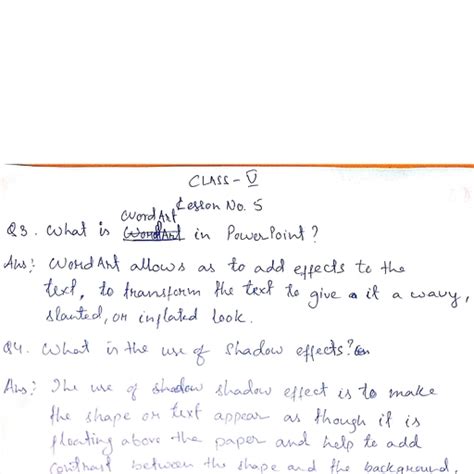 CLASS - V
Lesson No. 5
WordArt
Q3. What is WordArt in PowerPoint?
Ans: WordArt allows as to add effects to the
text, to transform the text to give a it a wavy,
slanted, or inflated look.
Q4. What is the use of Shadow effects?
Ans: The use of shadow shadow effect is to make
the shape or text appear as though it is
floating above the paper and help to add
contrast between the shape and the background.